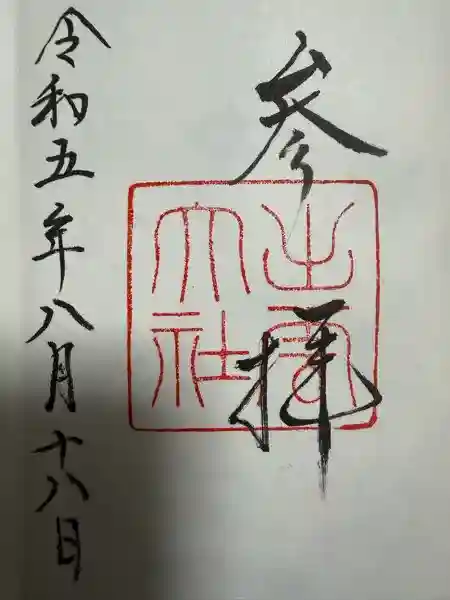 参拝
出雲大社
令和五年八月十八日